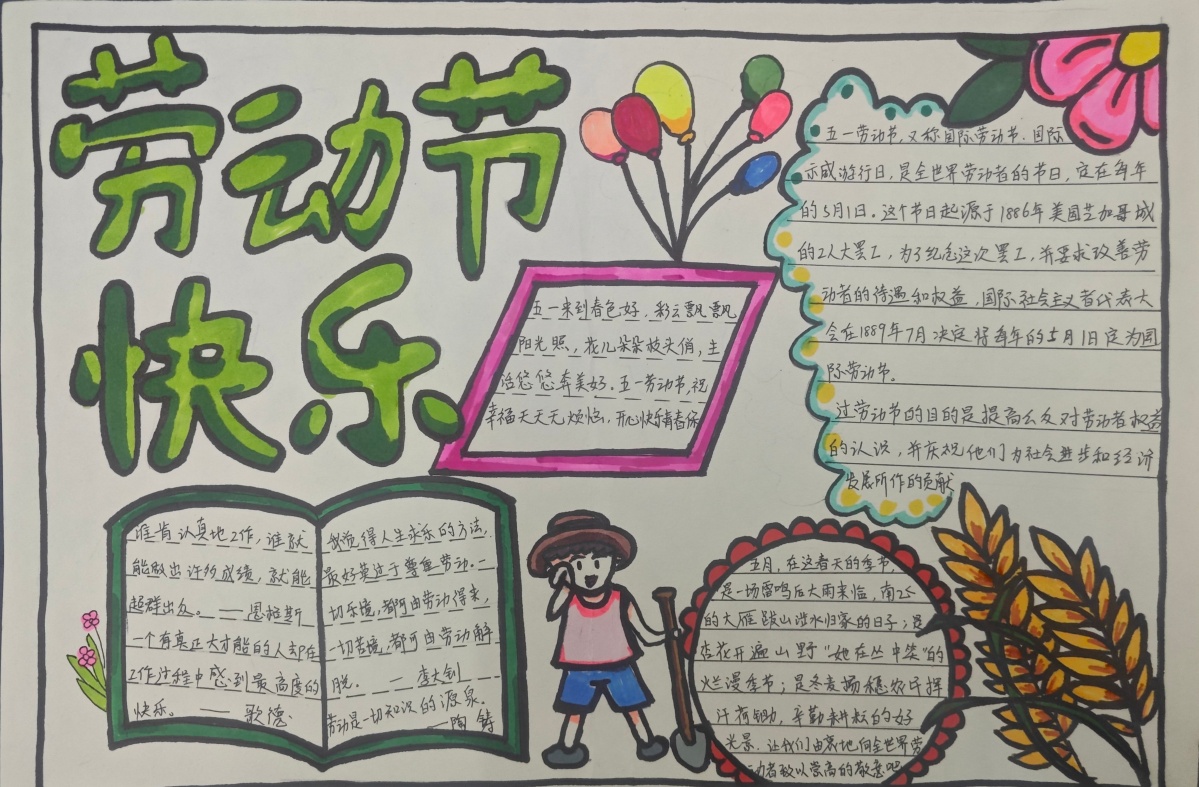 劳动节
快乐
五一来到春色好，彩云飘飘
阳光照，花儿朵朵枝头俏，生
活悠悠奔美好。五一劳动节，祝
幸福天天无烦恼，开心快乐青春保
五一劳动节，又称国际劳动节、国际
示威游行日，是全世界劳动者的节日，定在每年
的5月1日。这个节日起源于1886年美国芝加哥城
的工人大罢工，为了纪念这次罢工，并要求改善劳
动者的待遇和权益，国际社会主义者代表大
会在1889年7月决定将每年的5月1日定为国
际劳动节。
过劳动节的目的是提高公众对劳动者权益
的认识，并庆祝他们为社会进步和经济
发展所作的贡献
谁肯认真地工作，谁就
能做出许多成绩，就能
超群出众。——恩格斯
一个有真正大才能的人却在
工作过程中感到最高度的
快乐。——歌德
我觉得人生求乐的方法，
最好莫过于尊重劳动。一
切乐境，都可由劳动得来，
一切苦境，都可由劳动解
脱。——李大钊
劳动是一切知识的源泉。
——陶铸
五月，在这春天的季节，
是一场雷鸣后大雨来临，南飞
的大雁跋山涉水归家的日子；是
杏花开遍山野“她在丛中笑”的
烂漫季节；是冬麦扬穗农民挥
汗荷锄，辛勤耕耘的好
光景。让我们由衷地向全世界劳
动者致以崇高的敬意吧